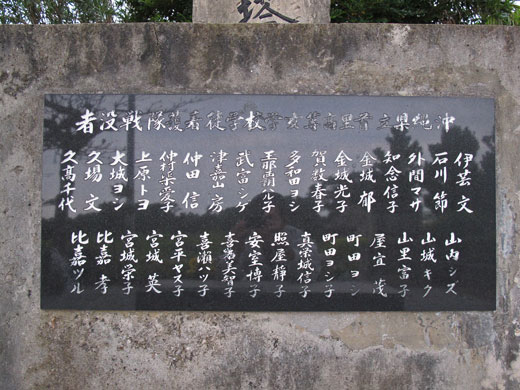 塔
沖縄県立首里高等女学校学徒看護隊戦没者
伊芸文
石川節
外間マサ
知念信子
金城郁
金城光子
賀数春子
多和田ヨシ
玉那覇ハル子
武富シゲ
津嘉山房
仲田信
仲村渠愛子
上原トヨ
大城ヨシ
久場文
久高千代
山内シズ
山城キク
山里富子
屋宜茂
町田ヨシ
町田ヨシ子
真栄城信子
照屋静子
安室博子
喜瀬ハツ子
宮平ヤス子
宮城英
宮城栄子
比嘉孝
比嘉ツル